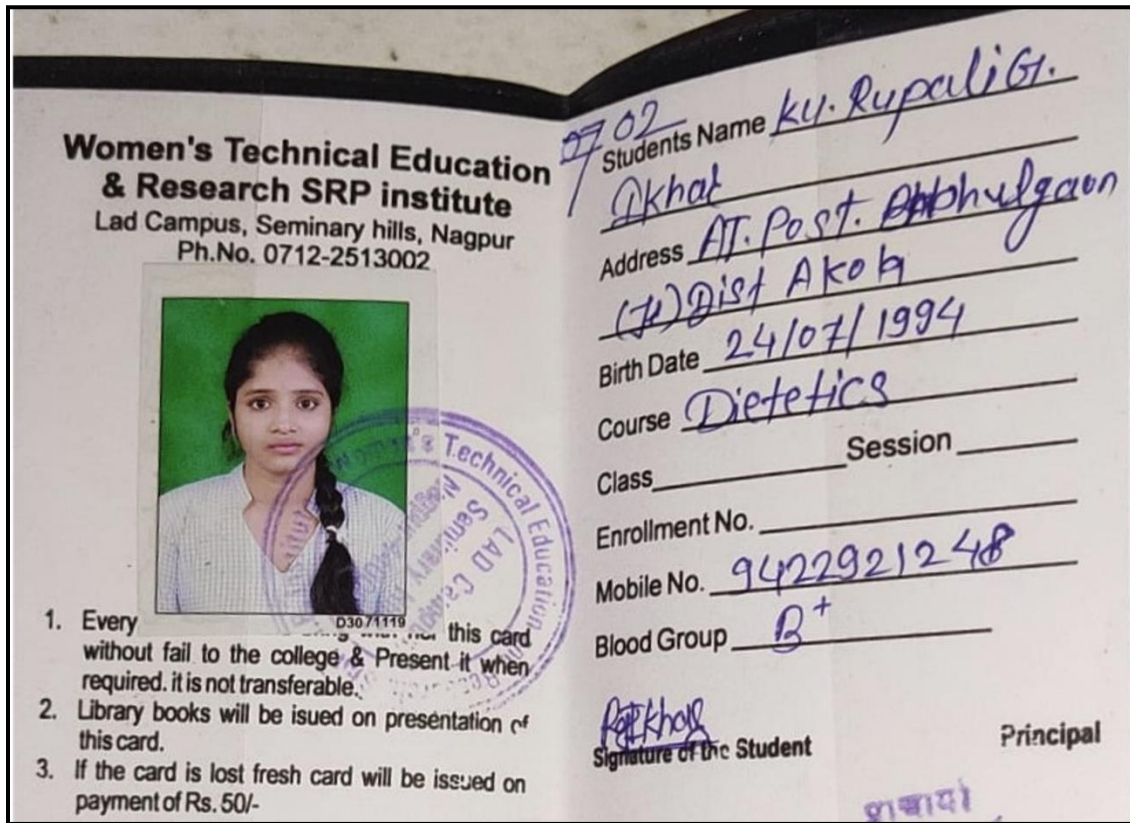 Women's Technical Education
& Research SRP institute
Lad Campus, Seminary hills, Nagpur
Ph.No. 0712-2513002
D3071119
1. Every this card
without fail to the college & Present it when
required. it is not transferable.
2. Library books will be isued on presentation of
this card.
3. If the card is lost fresh card will be issued on
payment of Rs. 50/-
Technical Education
LAD
Seminary
02
Students Name Ku. Rupali G.
Address AT. Post.
Dist Akola
Birth Date 24/07/1994
Course Dietetics
Class Session
Enrollment No.
Mobile No. 9422921248
Blood Group B+
Signature of the Student Principal